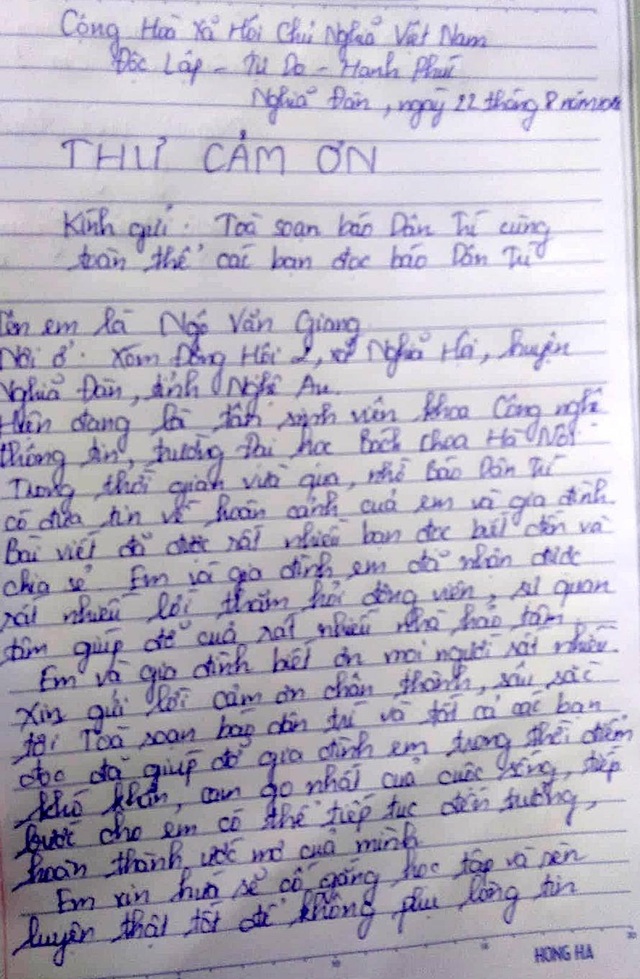 Cộng Hoà Xã Hội Chủ Nghĩa Việt Nam
Độc Lập - Tự Do - Hạnh Phúc
Nghĩa Đàn, ngày 22 tháng 8 năm
THƯ CẢM ƠN
Kính gửi: Toà soạn báo Dân Trí cùng
toàn thể các bạn đọc báo Dân Trí
Tên em là Ngô Văn Giang
Nơi ở: Xóm Đồng Hội 2, xã Nghĩa Hội, huyện
Nghĩa Đàn, tỉnh Nghệ An.
Hiện đang là tân sinh viên khoa Công nghệ
thông tin, trường Đại học Bách khoa Hà Nội
Trong thời gian vừa qua, nhờ Báo Dân Trí
có đưa tin về hoàn cảnh của em và gia đình.
Bài viết đã được rất nhiều bạn đọc biết đến và
chia sẻ Em và gia đình em đã nhận được
rất nhiều lời thăm hỏi động viên, sự quan
tâm giúp đỡ của rất nhiều nhà hảo tâm.
Em và gia đình biết ơn mọi người rất nhiều.
Xin gửi lời cảm ơn chân thành, sâu sắc
tới Toà soạn báo dân trí và tất cả các bạn
đọc đã giúp đỡ gia đình em trong thời điểm
khó khăn, cam go nhất của cuộc sống, tiếp
bước cho em có thể tiếp tục đến trường,
hoàn thành ước mơ của mình
Em xin hứa sẽ cố gắng học tập và rèn
luyện thật tốt để không phụ lòng tin
HONG HA